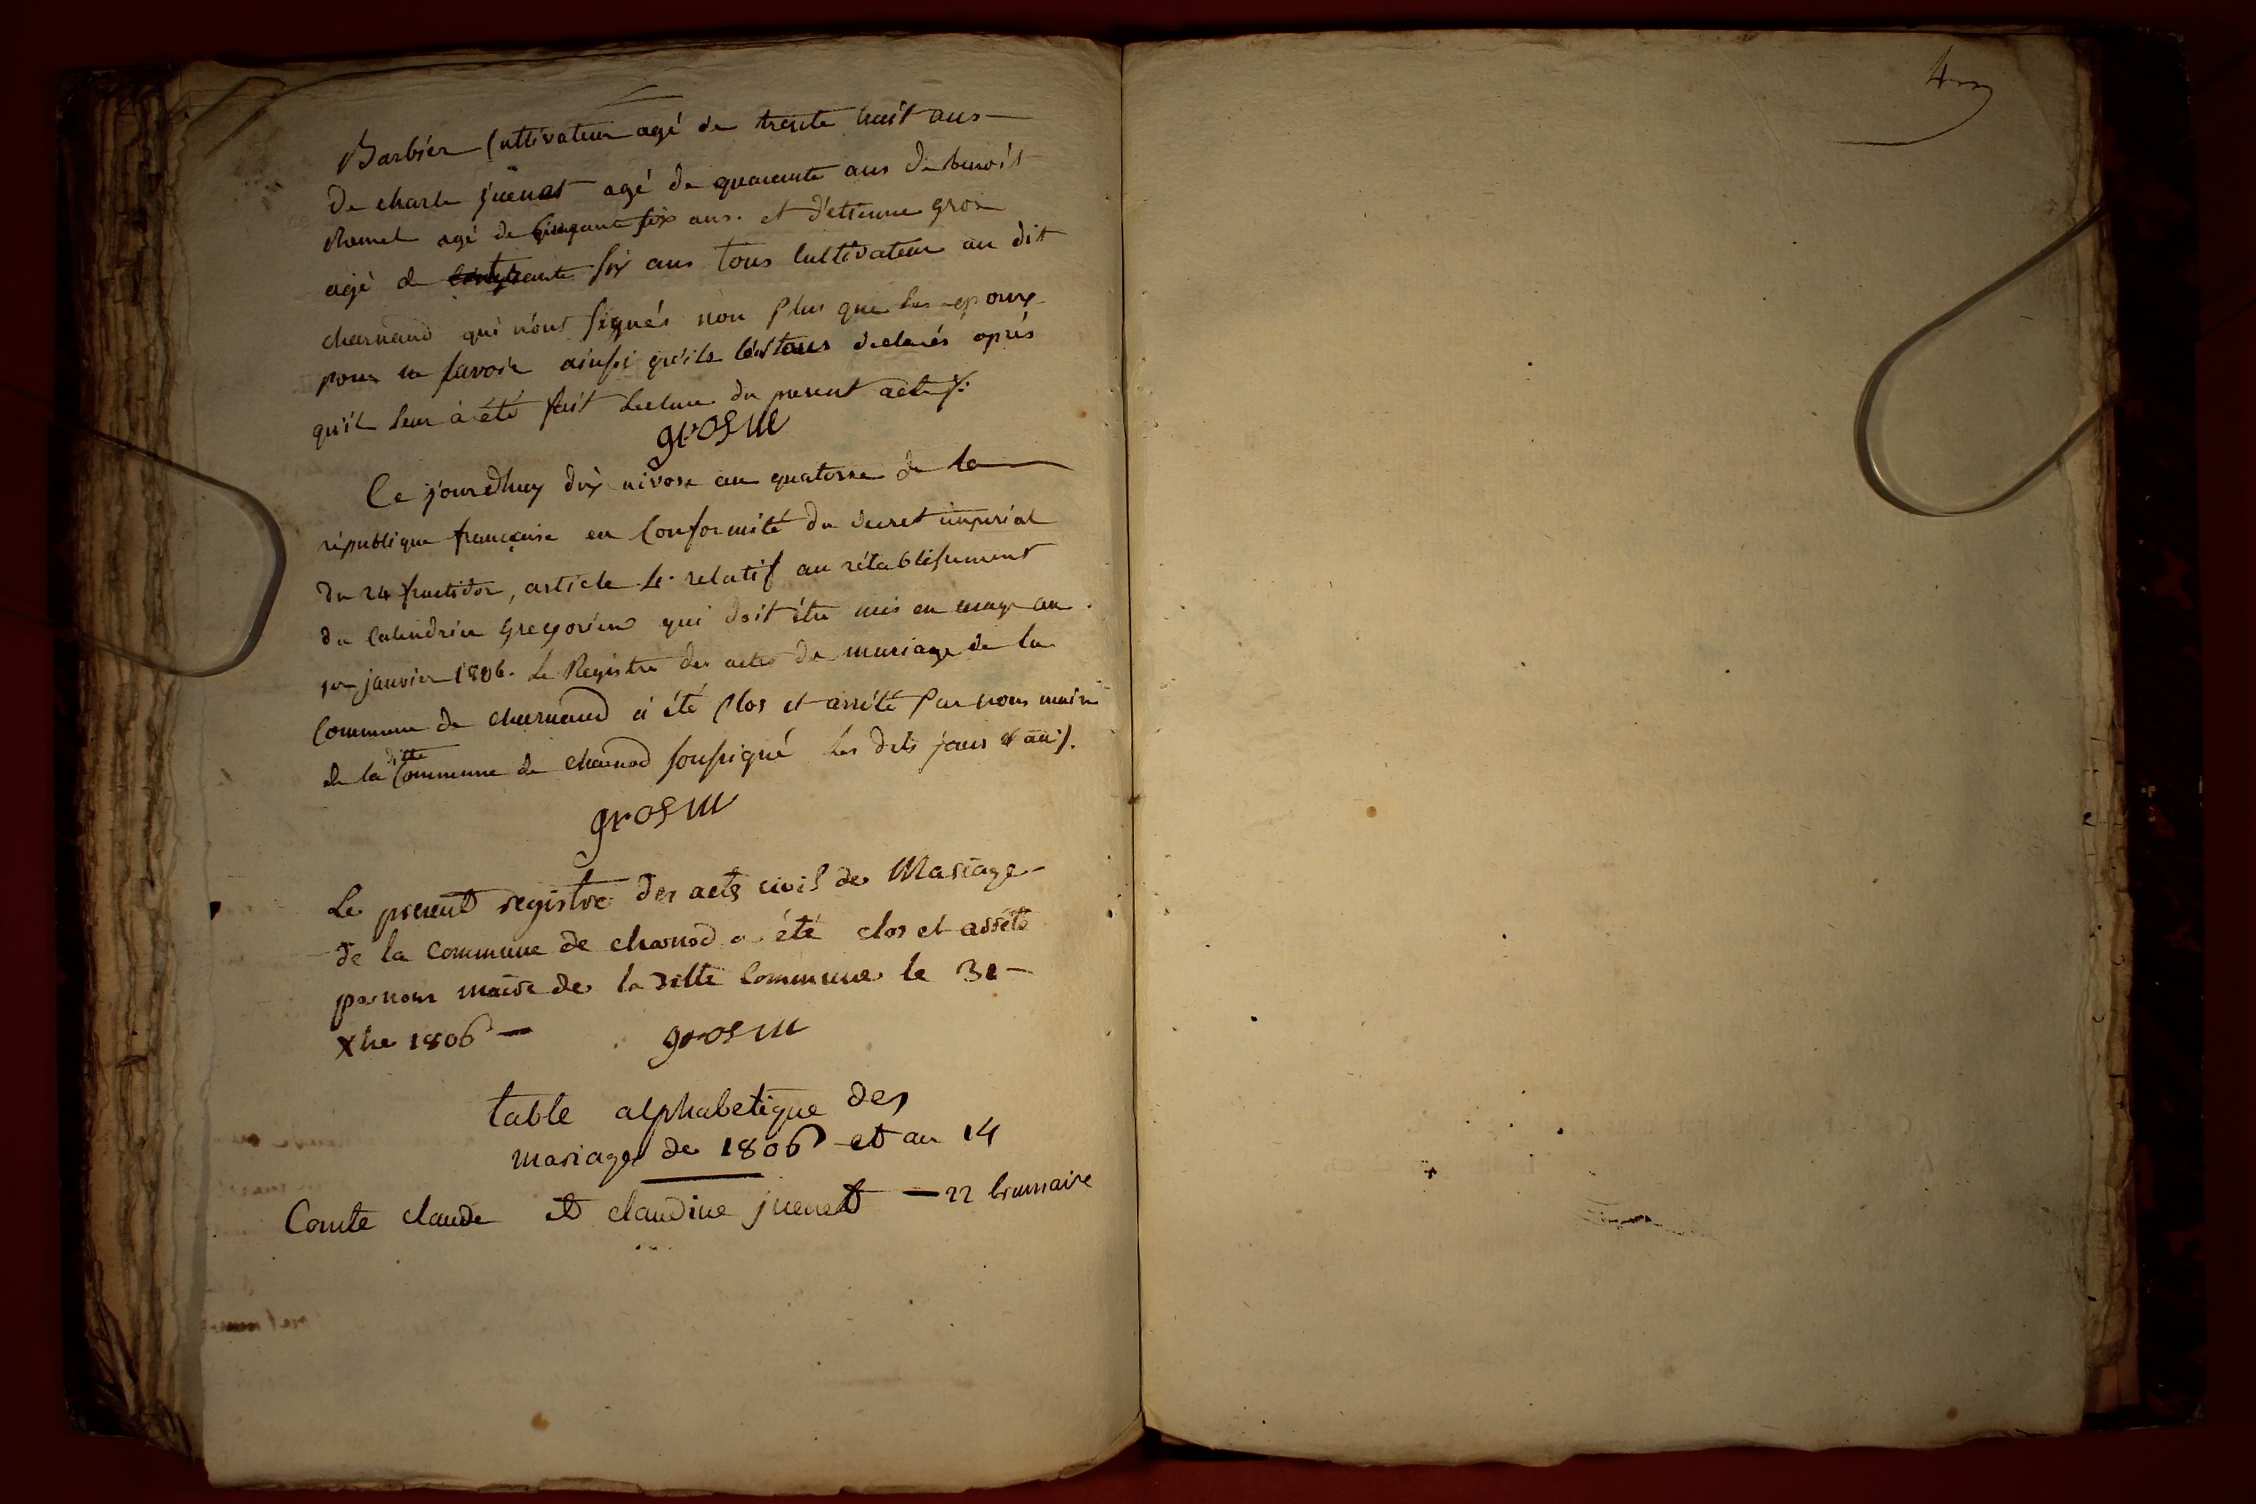 Barbier Cultivateur agé de trente huit ans
de charle juenet agé de quarante ans de benoit
Romel agé de Cinquante six ans. et d'etienne gros
agé de six ans tous Cultivateur au dit
charnaud qui n'ont signés non plus que les epoux
pour ne savoir ainssi qu'ils l'ont tous declarés après
qu'il leur à été fait Lecture du present acte
gros m
Ce jourdhuy dix nivose an quatorze de la
république française en Conformité du decret imperial
du 24 fructidor, article 1er relatif au rétablissement
du Calendrier Gregorien qui doit être mis en usage au
1er janvier 1806. Le Registre des actes de mariage de la
Commune de charnaud à été Clos et arrêté Par nous maire
de la ditte Commune de charnod soussigné les dits jours & an
gros m
Le present registre des acts civil de Mariage
de la commune de charnod a été clos et arrété
par nous maire de la ditte Commune le 31
Xbre 1806
gros m
table alphabetique des
mariages de 1806 et an 14
Comte claude et claudine juenet — 22 brumaire
4